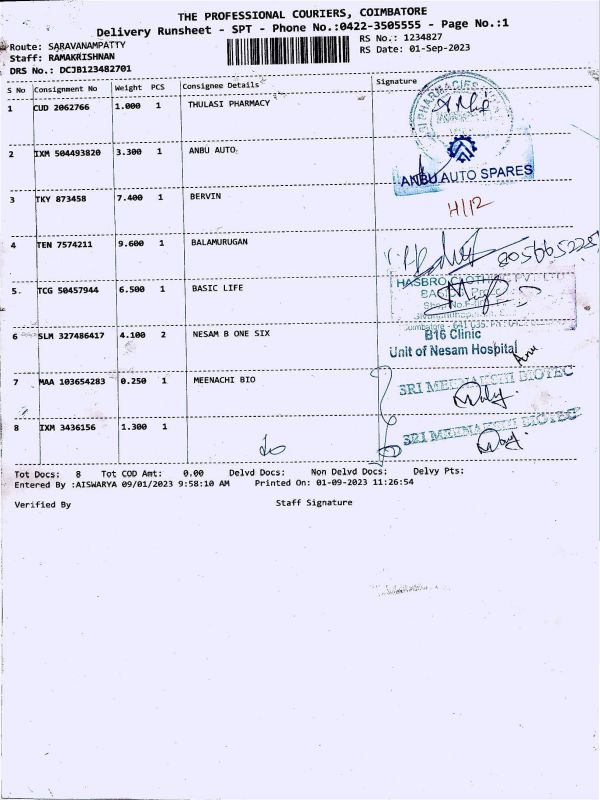 THE PROFESSIONAL COURIERS, COIMBATORE
Delivery Runsheet - SPT - Phone No.:0422-3505555 - Page No.:1
Route: SARAVANAMPATTY
RS No.: 1234827
Staff: RAMAKRISHNAN
RS Date: 01-Sep-2023
DRS No.: DCJB123482701
S No Consignment No Weight PCS Consignee Details Signature
1 CUD 2062766 1.000 1 THULASI PHARMACY
2 IXM 504493820 3.300 1 ANBU AUTO
ANBU AUTO SPARES
3 TKY 873458 7.400 1 BERVIN
H/12
4 TEN 7574211 9.600 1 BALAMURUGAN
5 TCG 50457944 6.500 1 BASIC LIFE
HASBRO CLOTHING PVT. LTD
6 SLM 327486417 4.100 2 NESAM B ONE SIX
B16 Clinic
Unit of Nesam Hospital
7 MAA 103654283 0.250 1 MEENACHI BIO
SRI MEENAKSHI BIOTEC
8 IXM 3436156 1.300 1
SRI MEENAKSHI BIOTEC
Tot Docs: 8 Tot COD Amt: 0.00 Delvd Docs: Non Delvd Docs: Delvy Pts:
Entered By :AISWARYA 09/01/2023 9:58:10 AM Printed On: 01-09-2023 11:26:54
Verified By Staff Signature